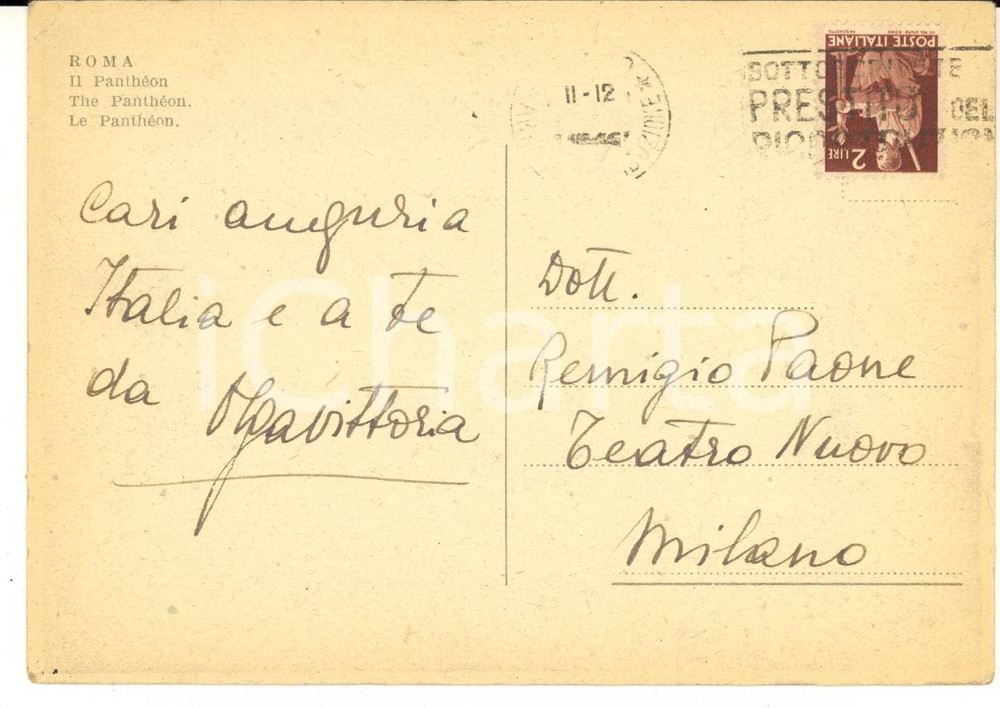 ROMA
Il Panthéon
The Panthéon.
Le Panthéon.
11-12
SOTTOSCRIVETE
PRESTITO DEL
POSTE ITALIANE
2 LIRE
Cari auguria
Italia e a te
da Olgavittoria
Dott.
Remigio Paone
Teatro Nuovo
Milano
iCharta